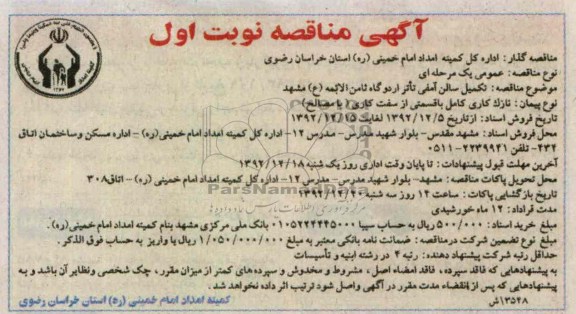 آگهی مناقصه نوبت اول
مناقصه گذار: اداره کل کمیته امداد امام خمینی (ره) استان خراسان رضوی
نوع مناقصه: عمومی یک مرحله ای
موضوع مناقصه: تکمیل سالن آمفی تأتر اردوگاه ثامن الائمه (ع) مشهد
نوع پیمان: نازک کاری کامل باقسمتی از سفت کاری (با مصالح)
تاریخ فروش اسناد: ازتاریخ ۱۳۹۲/۱۲/۵ لغایت ۱۳۹۲/۱۲/۱۵
محل فروش اسناد: مشهد مقدس- بلوار شهید مدرس- مدرس ۱۲- اداره کل کمیته امداد امام خمینی(ره) - اداره مسکن وساختمان اتاق
۴۳۴- تلفن ۲۲۳۹۹۴۱-۰۵۱۱
آخرین مهلت قبول پیشنهادات: تا پایان وقت اداری روز یک شنبه ۱۳۹۲/۱۲/۱۸
محل تحویل پاکات مناقصه: مشهد- بلوار شهید مدرس- مدرس ۱۲- اداره کل کمیته امداد امام خمینی (ره) - اتاق۳۰۸
تاریخ بازگشایی پاکات: ساعت ۱۴ روز سه شنبه ۱۳۹۲/۱۲/۲۰
مدت قراداد: ۱۲ ماه خورشیدی
مبلغ خرید اسناد: ۵۰۰/۰۰۰ ریال به حساب سیبا ۰۱۰۵۲۲۲۴۴۵۰۰۰ بانک ملی مرکزی مشهد بنام کمیته امداد امام خمینی(ره).
مبلغ نوع تضمین شرکت درمناقصه: ضمانت نامه بانکی معتبر به مبلغ ۱/۰۵۰/۰۰۰/۰۰۰ ریال یا واریز به حساب فوق الذکر.
حداقل رتبه شرکت پیشنهاد دهنده: رتبه ۴ در رشته ابنیه و تأسیسات
به پیشنهادهایی که فاقد سپرده، فاقد امضاء اصل، مشروط و مخدوش و سپرده های کمتر از میزان مقرر، چک شخصی ونظایر آن باشد و به
پیشنهادهایی که پس از انقضاء مدت مقرر در آگهی واصل شود ترتیب اثر داده نخواهد شد.
۱۳۵۴۸/ش
کمیته امداد امام خمینی (ره) استان خراسان رضوی
ParsNamadData